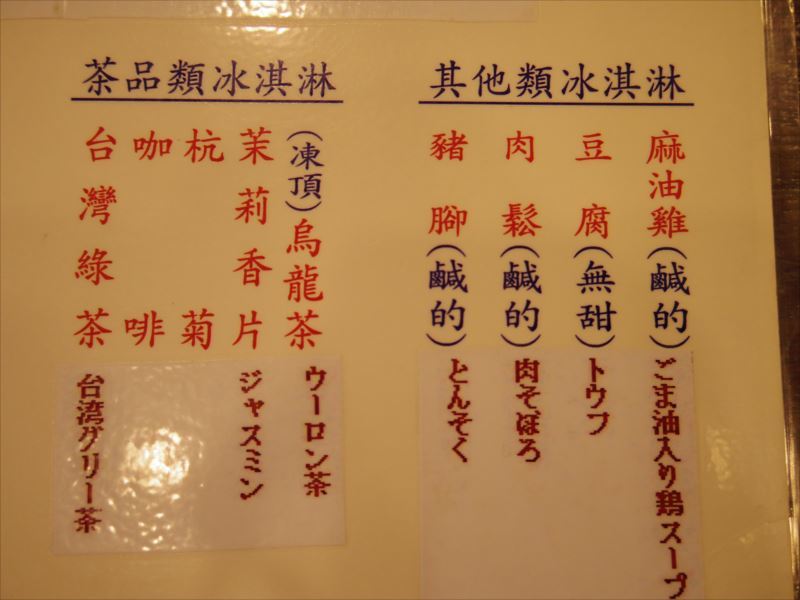 其他類冰淇淋
麻油雞(鹹的)
豆腐(無甜)
肉鬆(鹹的)
豬腳(鹹的)
ごま油入り鶏スープ
トウフ
肉そぼろ
とんそく
茶品類冰淇淋
(凍頂)烏龍茶
茉莉香片
杭菊
咖啡
台灣綠茶
ウーロン茶
ジャスミン
台湾グリー茶